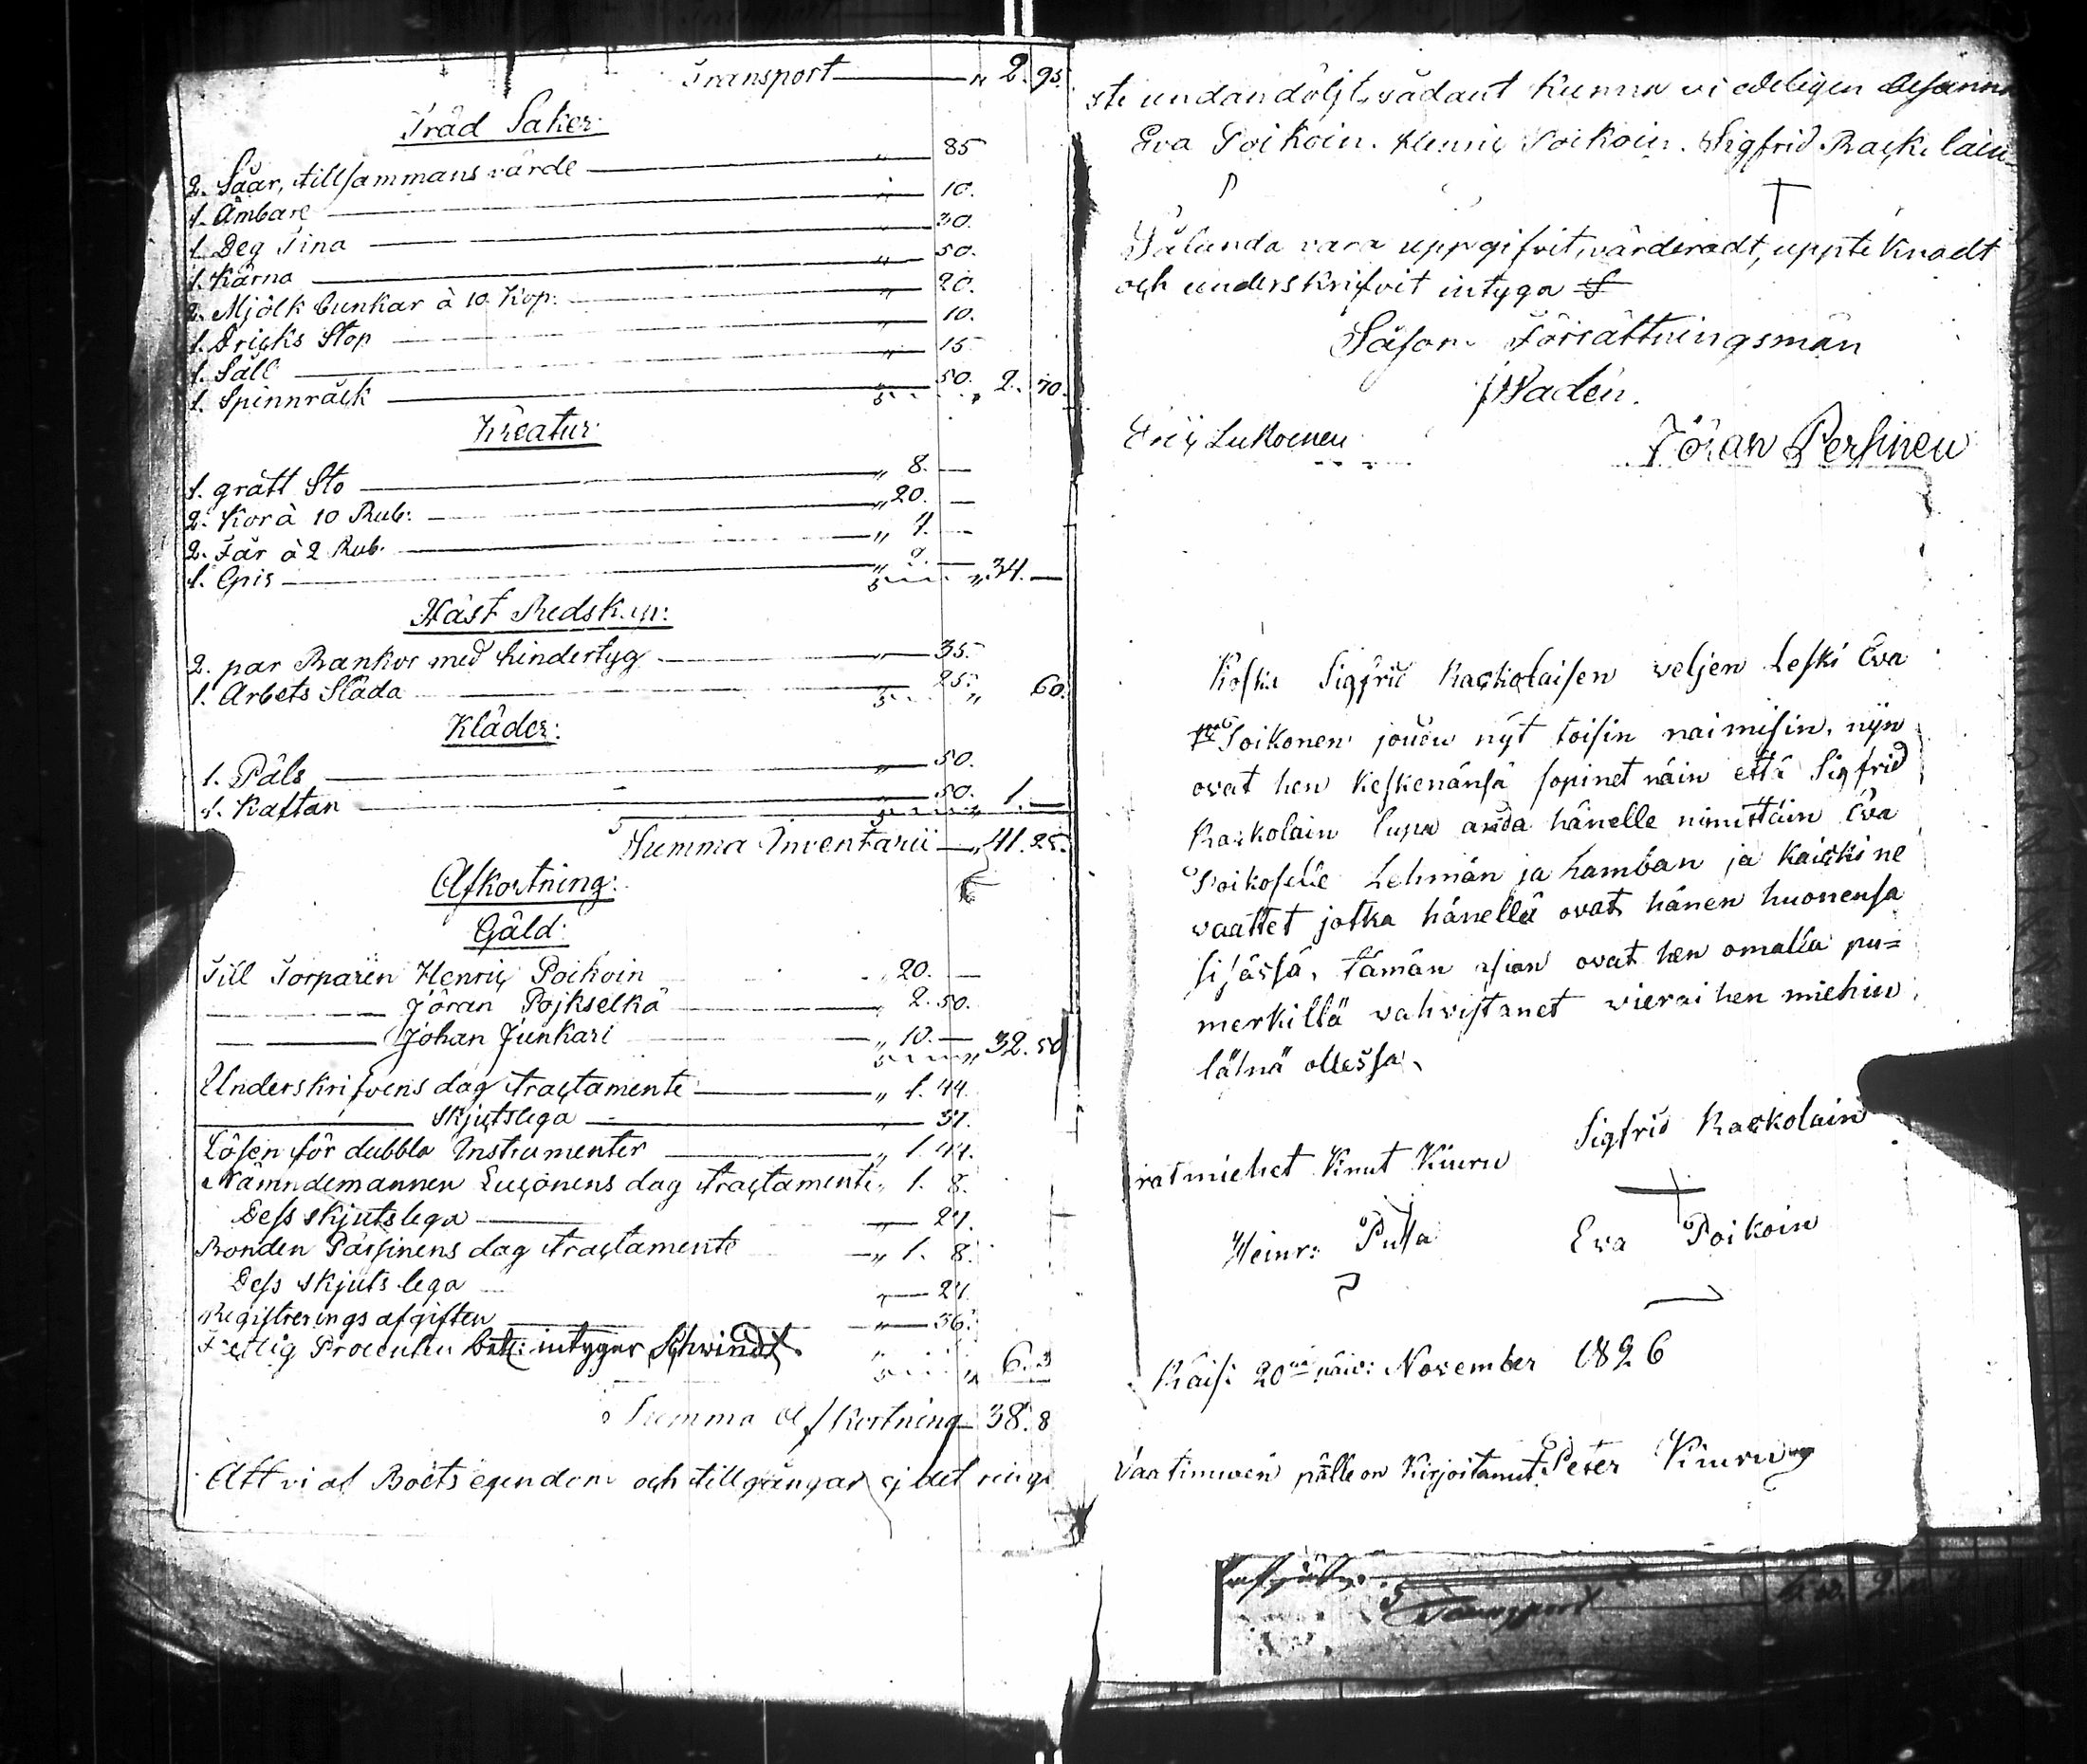 Transport — " 2. 95.
Träd Saker:
2. Såar, tillsammans värde — " — 85
1. Ämbare — " — 10.
1. Deg Tina — " — 30.
1. Kärna — " — 50.
2. Mjölk bunkar à 10 Kop: — " — 20.
1. Dricks Stop — " — 10.
1. Såll — " — 15
1. Spinnråck — " — 50. " 2. 70.
Kreatur:
1. grått Sto — " 8. —
2. Kor à 10 Rub: — " 20. —
2. Får à 2 Rub. — " 4. —
1. Gris — " 2. — " 34. —
Häst Redskap:
2. par Rankor med hindertyg — " — 35.
1. Arbets Släda — 25. " 60.
Kläder:
1. Päls — " — 50.
1. Kaftan — " — 50. " 1. —
Summa Inventarii — " 41. 25.
Afkortning:
Gäld:
Till Torparen Henric Poikoin " 20. —
— Jöran Pojkselkä — " 2. 50.
— Johan Junkari — " 10. — " 32. 50
Underskrifvens dag tractamente — " 1. 44.
— skjutslega — " — 27.
Lösen för dubbla Instrumenter — " 1. 44.
Nämndemannen Lucoinens dag tractamente " 1. 8.
Dess skjutslega — " — 27.
Bonden Pärsinens dag tractamente — " 1. 8.
Dess skjuts lega — " — 27.
Registrerings afgiften — " — 36.
Fattig Procenten bet: intygar Schwindt. " 6.
Summa Afkortning — 38. 8
Att vi af Boets egendom och tillgångar ej det ringa
ste undandöljt, sådant kunna vi edeligen besanna
Eva Poikoin. Henric Poikoin. Sigfrid Rackolain
Sålunda vara uppgifvit, värderadt, uppteknadt
och underskrifvit intyga
Såsom Förrättningsmän
J Wadén.
Eric Lukoinen Jöran Persinen
Koska Sigfrid Rackolaisen veljen Leski Eva
Poikonen jouău nyt toisin naimisin, nijn
ovat hen keskenänsä sopinet näin että Sigfrid
Rackolain lupa anda hänelle nimittäin Eva
Poikoselle Lehmän ja Lamban ja kaickine
vaattet jotka hänellä ovat hänen huonensa
sisässä, tämän asian ovat hen omalla pu=
merkillä vahvistanet wieraihen miehin
läsnä ollessa.
ratmiehet Knut Kiuru Sigfrid Rackolain
Heinr: Pulla Eva Poikoin
Räis: 20nä päiv: November 1826
Vaatimuxen pälle on Kirjoitanut Peter Kiuru
Transport